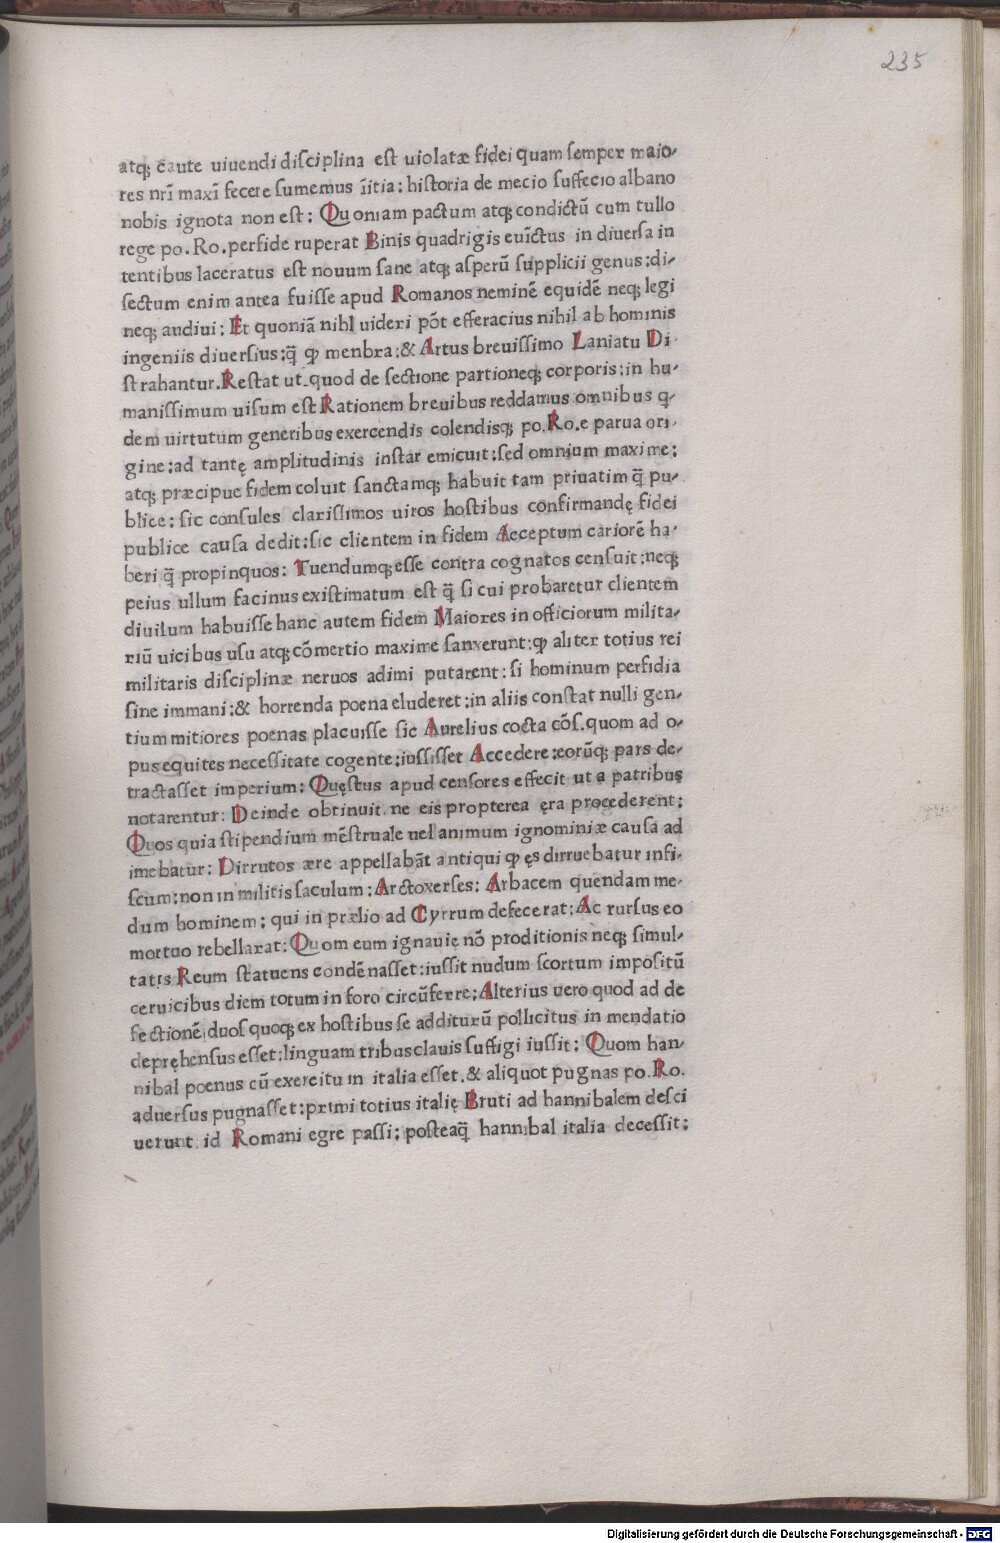 235
atqꝫ caute uiuendi diſciplina eſt uiolatæ fidei quam ſemper maio-
res nr̃i maxĩ fecere ſumemus ĩitia: hiſtoria de mecio ſuffecio albano
nobis ignota non eſt: Quoniam pactum atqꝫ condictũ cum tullo
rege po. Ro. perfide ruperat Binis quadrigis euĩctus in diuerſa in
tentibus laceratus eſt nouum ſane atqꝫ aſperũ ſupplicii genus: di-
ſectum enim antea fuiſſe apud Romanos neminẽ equidẽ neqꝫ legi
neqꝫ audiui: Et quoniã nihl uideri põt efferacius nihil ab hominis
ingeniis diuerſius: q̃ ꝙ menbra: & Artus breuiſſimo Laniatu Di-
ſtrahantur. Reſtat ut quod de ſectione partioneqꝫ corporis: in hu-
maniſſimum uiſum eſt Rationem breuibus reddamus omnibus q-
dem uirtutum generibus exercendis colendisqꝫ po. Ro. e parua ori-
gine: ad tantę amplitudinis inſtar emicuit: ſed omnium maxime:
atqꝫ præcipue fidem coluit ſanctamqꝫ habuit tam priuatim q̃ pu-
blice: ſic conſules clariſſimos uiros hoſtibus confirmandę fidei
publice cauſa dedit: ſic clientem in fidem Acceptum cariorẽ ha-
beri q̃ propinquos: Tuendumqꝫ eſſe contra cognatos cenſuit: neqꝫ
peius ullum facinus exiſtimatum eſt q̃ ſi cui probaretur clientem
diuiſum habuiſſe hanc autem fidem Maiores in officiorum milita-
riũ uicibus uſu atqꝫ cõmertio maxime ſanxerunt: ꝙ aliter totius rei
militaris diſciplinæ neruos adimi putarent: ſi hominum perfidia
ſine immani: & horrenda poena eluderet: in aliis conſtat nulli gen-
tium mitiores poenas placuiſſe ſic Aurelius cocta cõſ. quom ad o-
pus equites neceſſitate cogente: iuſſiſſet Accedere: eorũqꝫ pars de-
tractaſſet imperium: Quęſtus apud cenſores effecit ut a patribus
notarentur: Deinde obtinuit ne eis propterea ęra procederent:
Quos quia ſtipendium mẽſtruale uel animum ignominiæ cauſa ad
imebatur: Dirrutos ære appellabãt antiqui ꝙ ęs dirruebatur infi-
ſcum: non in militis ſaculum: Arctoxerſes: Arbacem quendam me-
dum hominem: qui in prælio ad Cyrrum defecerat: Ac rurſus eo
mortuo rebellarat: Quom eum ignauię nõ proditionis neqꝫ ſimul-
tatis Reum ſtatuens condẽnaſſet: iuſſit nudum ſcortum impoſitũ
ceruicibus diem totum in foro circũferre: Alterius uero quod ad de
fectionẽ duoſ quoqꝫ ex hoſtibus ſe additurũ pollicitus in mendatio
depręhenſus eſſet: linguam tribus clauis ſuffigi iuſſit: Quom han-
nibal poenus cũ exercitu in italia eſſet. & aliquot pugnas po. Ro.
aduerſus pugnaſſet: primi totius italię Bruti ad hannibalem deſci
uerunt id Romani egre paſſi: poſteaq̃ hannibal italia deceſſit:
Digitalisierung gefördert durch die Deutsche Forschungsgemeinschaft - DFG